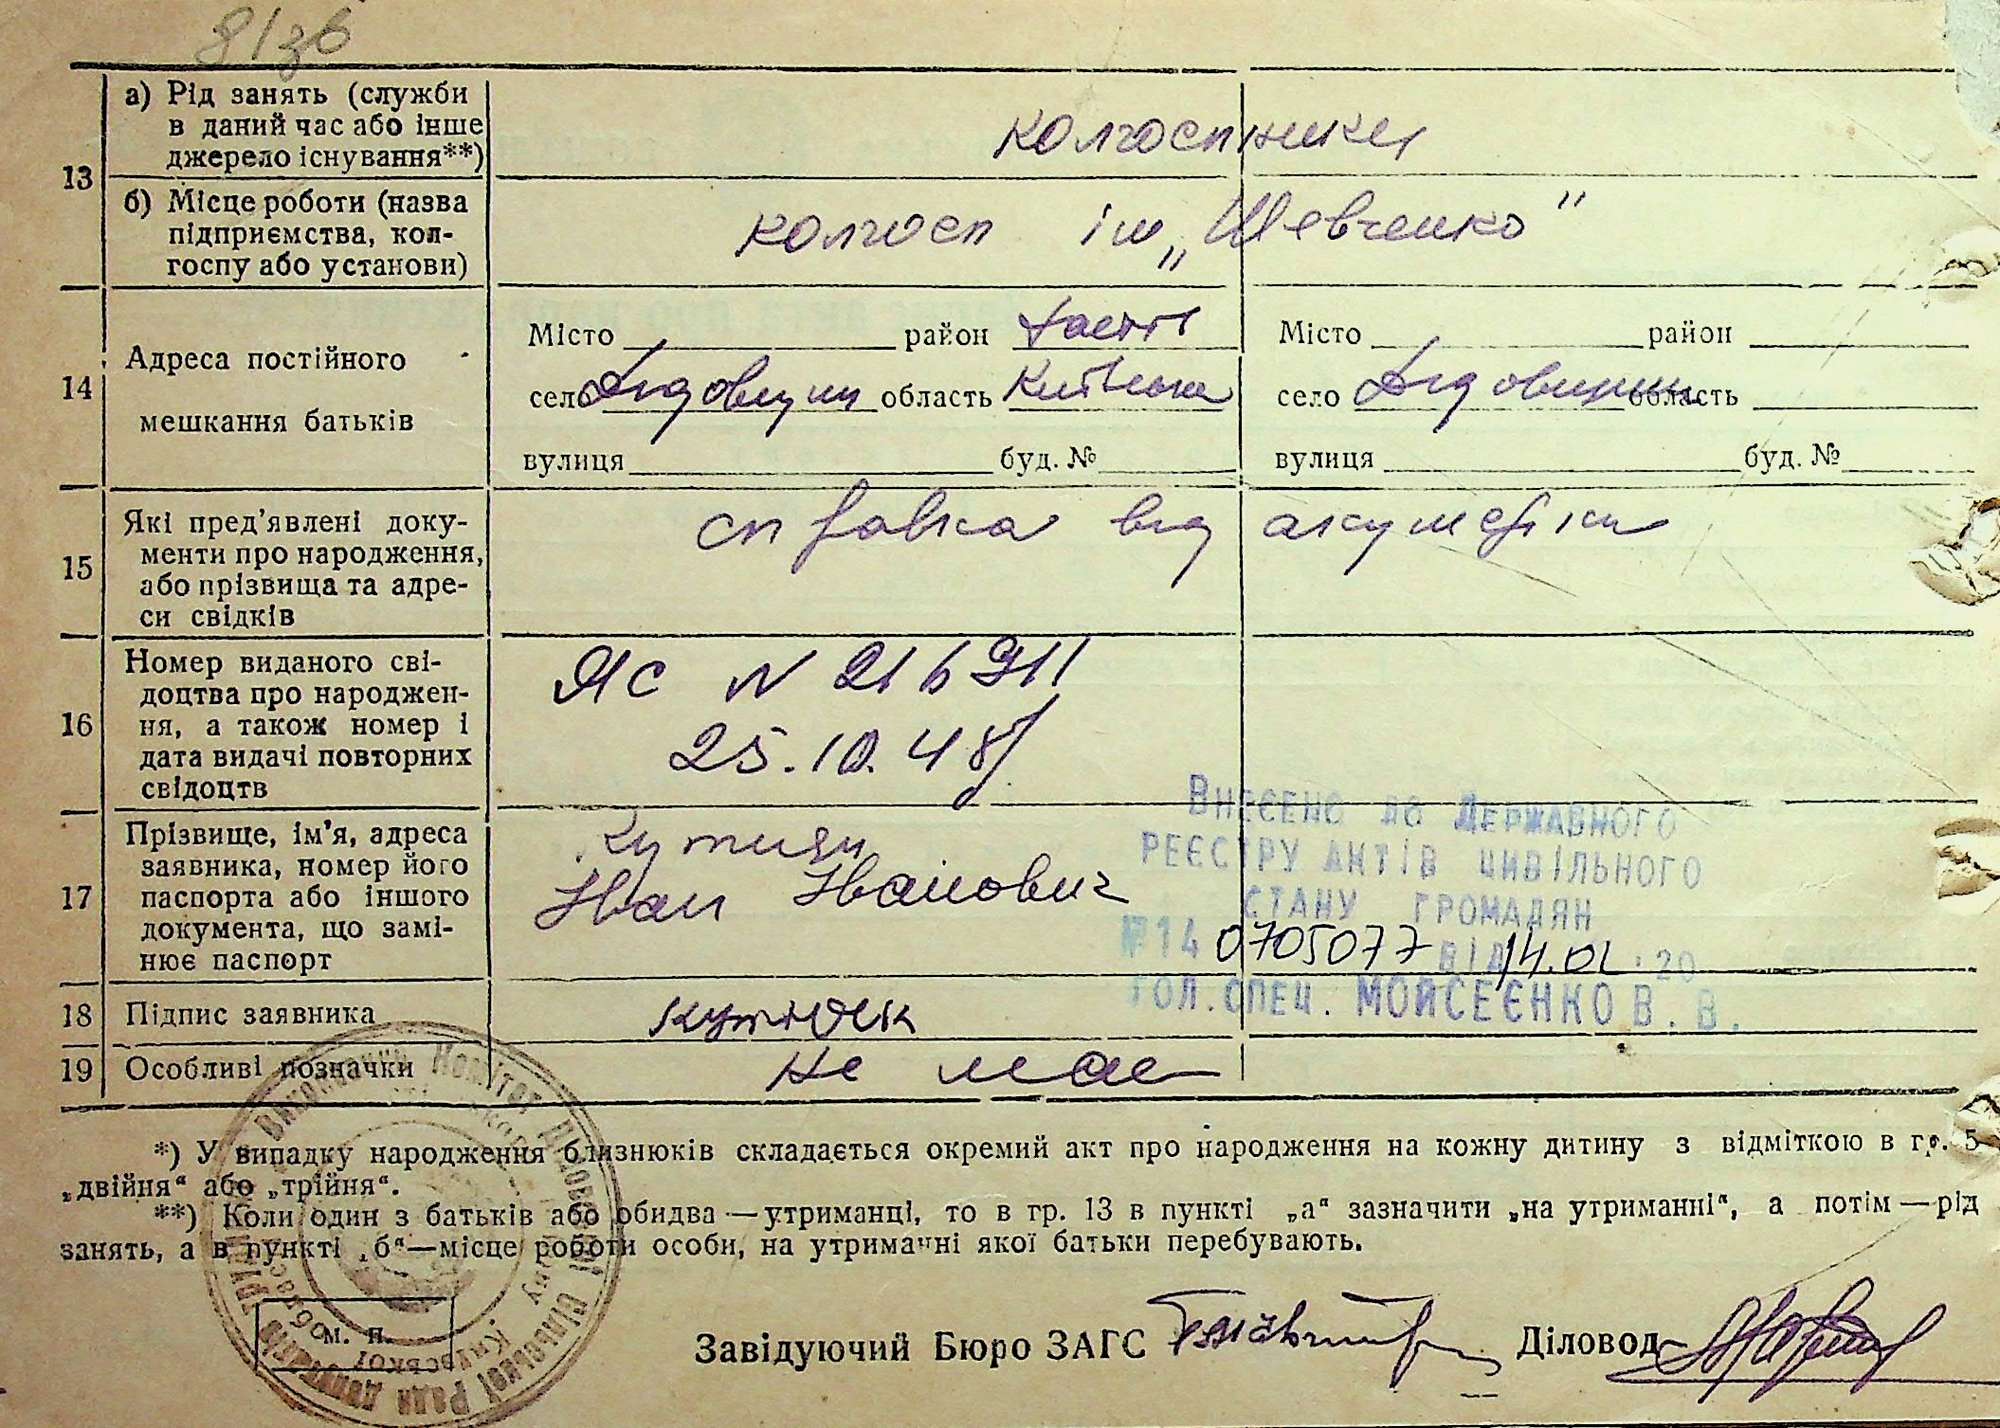 13
а) Рід занять (служби
в даний час або інше
джерело існування**)
колгоспники
б) Місце роботи (назва
підприємства, кол-
госпу або установи)
колгосп ім „Шевченко"
14
Адреса постійного
мешкання батьків
Місто район Фаст
село Дідовщин область Київська
вулиця буд. №
Місто район
село Дідовщин область
вулиця буд. №
15
Які пред'явлені доку-
менти про народження,
або прізвища та адре-
си свідків
справка від акушерки
16
Номер виданого сві-
доцтва про народжен-
ня, а також номер і
дата видачі повторних
свідоцтв
ЯС N 216911
25.10.48
17
Прізвище, ім'я, адреса
заявника, номер його
паспорта або іншого
документа, що замі-
нює паспорт
Іван Іванович
Внесено до Державного
реєстру актів цивільного
стану громадян
№14 0705077 від 14.01.20
гол.спец. Мойсеєнко В.В.
18
Підпис заявника
19
Особливі позначки
не має
*) У випадку народження близнюків складається окремий акт про народження на кожну дитину з відміткою в гр. 5
„двійня“ або „трійня“.
**) Коли один з батьків або обидва — утриманці, то в гр. 13 в пункті „а“ зазначити „на утриманні“, а потім — рід
занять, а в пункті „б“—місце роботи особи, на утриманні якої батьки перебувають.
Виконавчий Комітет Дідовської Сільської Ради депутатів
Київської
м. п.
Завідуючий Бюро ЗАГС
Діловод